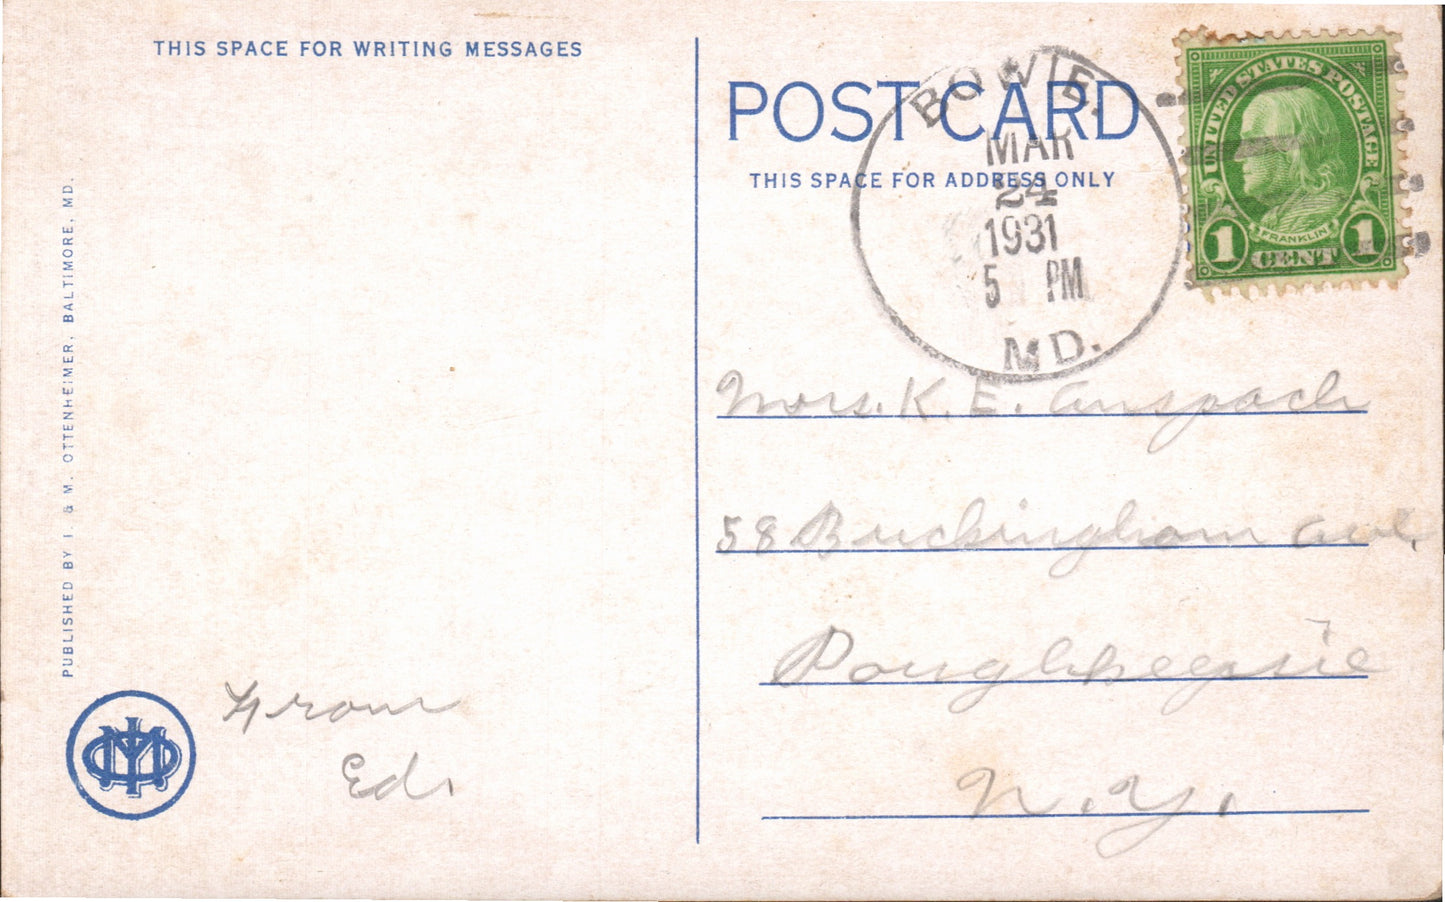 THIS SPACE FOR WRITING MESSAGES
PUBLISHED BY I. & M. OTTENHEIMER, BALTIMORE, MD.
From
Ed.
POST CARD
THIS SPACE FOR ADDRESS ONLY
BOWIE.
MAR
24
1931
5 PM
MD.
UNITED STATES POSTAGE
FRANKLIN
1 CENT 1
Mrs. K. E. Anspach
58 Buckingham Ave.
Poughkeepsie
N.Y.